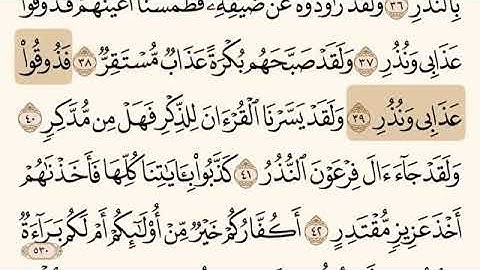 بِالنُّذُرِ ٣٦ وَلَقَدْ رَٰوَدُوهُ عَن ضَيْفِهِۦ فَطَمَسْنَآ أَعْيُنَهُمْ فَذُوقُوا۟
عَذَابِى وَنُذُرِ ٣٧ وَلَقَدْ صَبَّحَهُم بُكْرَةً عَذَابٌ مُّسْتَقِرٌّ ٣٨ فَذُوقُوا۟
عَذَابِى وَنُذُرِ ٣٩ وَلَقَدْ يَسَّرْنَا ٱلْقُرْءَانَ لِلذِّكْرِ فَهَلْ مِن مُّدَّكِرٍ ٤٠
وَلَقَدْ جَآءَ ءَالَ فِرْعَوْنَ ٱلنُّذُرُ ٤١ كَذَّبُوا۟ بِـَٔايَٰتِنَا كُلِّهَا فَأَخَذْنَٰهُمْ
أَخْذَ عَزِيزٍ مُّقْتَدِرٍ ٤٢ أَكُفَّارُكُمْ خَيْرٌ مِّنْ أُو۟لَٰٓئِكُمْ أَمْ لَكُم بَرَآءَةٌ
٥٣٠